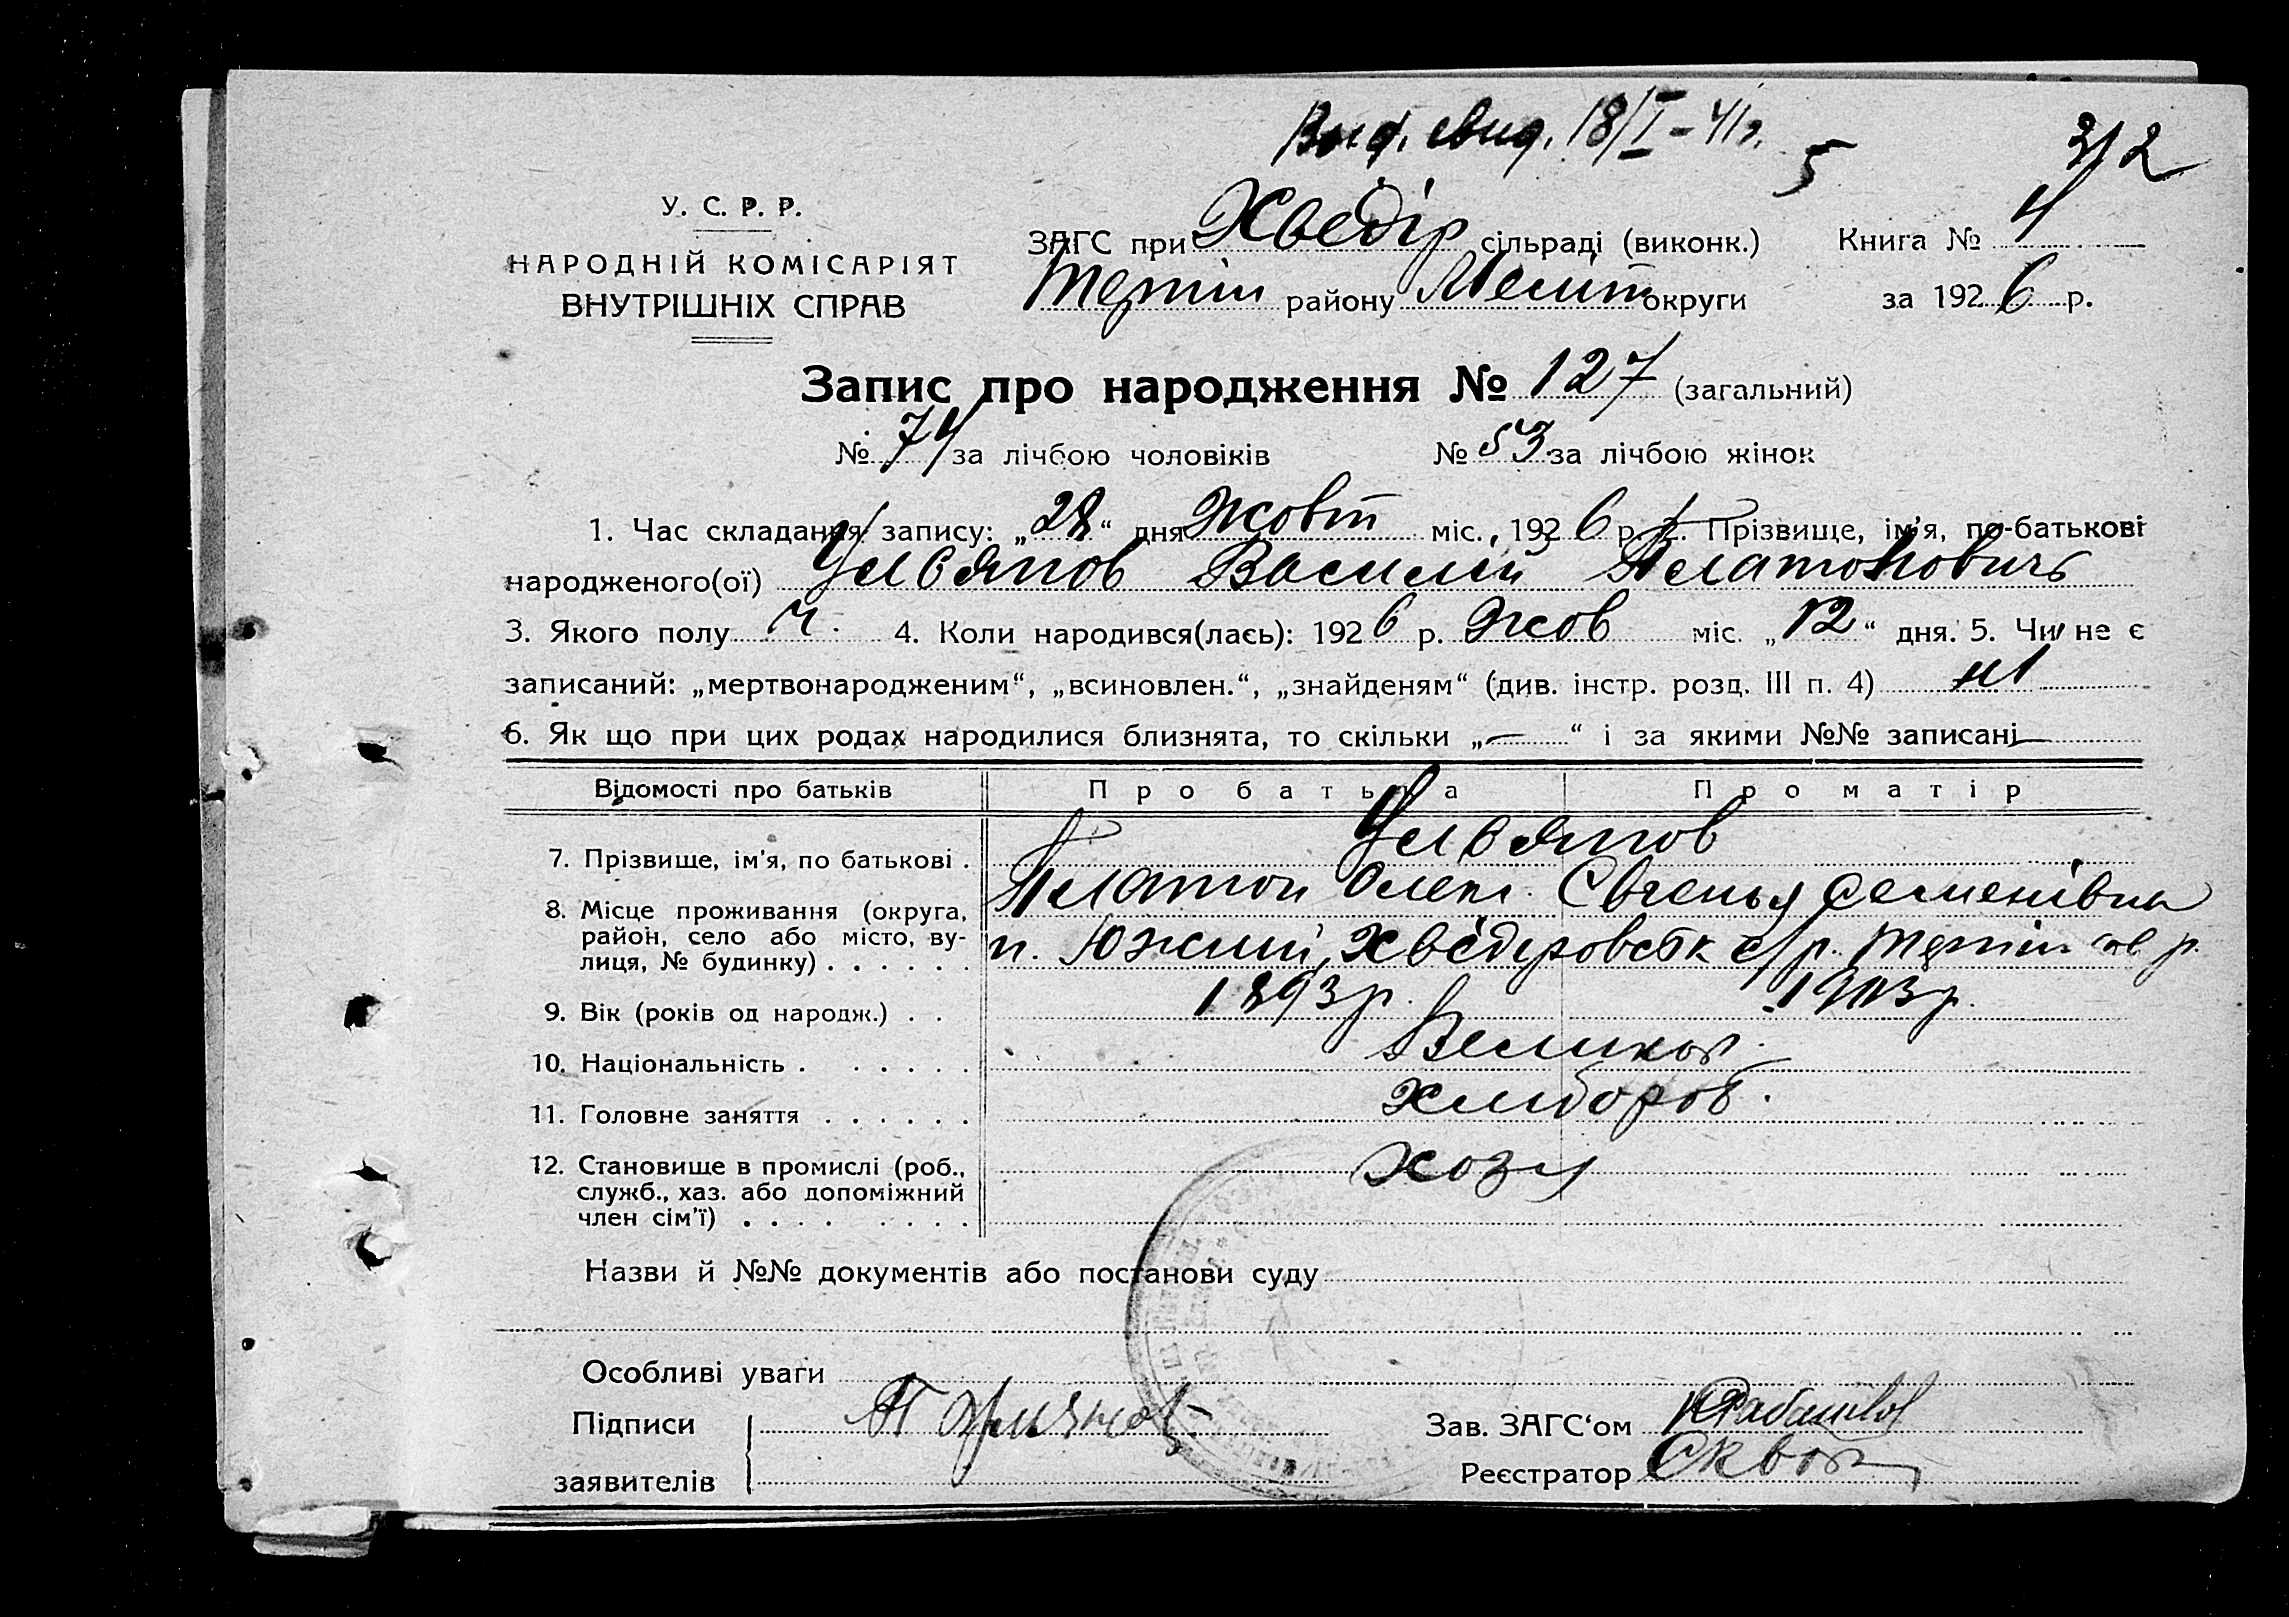 Вид. свид. 18/I-41 г.
5
312
У. С. Р. Р.
НАРОДНІЙ КОМІСАРІЯТ
ВНУТРІШНІХ СПРАВ
ЗАГС при Хведір сільраді (виконк.) Книга № 4
Терпін району Меліт округи за 1926 р.
Запис про народження № 127 (загальний)
№ 74 за лічбою чоловіків № 53 за лічбою жінок
1. Час складання запису: „28“ дня Жовт міс., 1926 р. 2. Прізвище, ім'я, по-батькові
народженого(ої) Ульянов Василій Платонович
3. Якого полу ч. 4. Коли народився(лаєь): 1926 р. Жов міс. „12“ дня. 5. Чи не є
записаний: „мертвонародженим“, „всиновлен.“, „знайденям“ (див. інстр. розд. III п. 4) ні
6. Як що при цих родах народилися близнята, то скільки „—“ і за якими №№ записані —
Відомості про батьків Про батька Про матір
Ульянов
7. Прізвище, ім'я, по батькові .
Платон Олекс. Євгенья Семенівна
8. Місце проживання (округа, район, село або місто, ву-лиця, № будинку) . . . . . .
п. Южний, Хведеровськ с/р. Терпін р.
9. Вік (років од народж.) . . 1893 р. 1903 р.
10. Національність . . . . . . Великор.
11. Головне заняття . . . . . . Хлибороб.
12. Становище в промислі (роб., служб., хаз. або допоміжний член сім'ї) . . . . . . . .
Хозя
Назви й №№ документів або постанови суду
Особливі уваги
Підписи
заявителів
Зав. ЗАГС'ом
Реєстратор